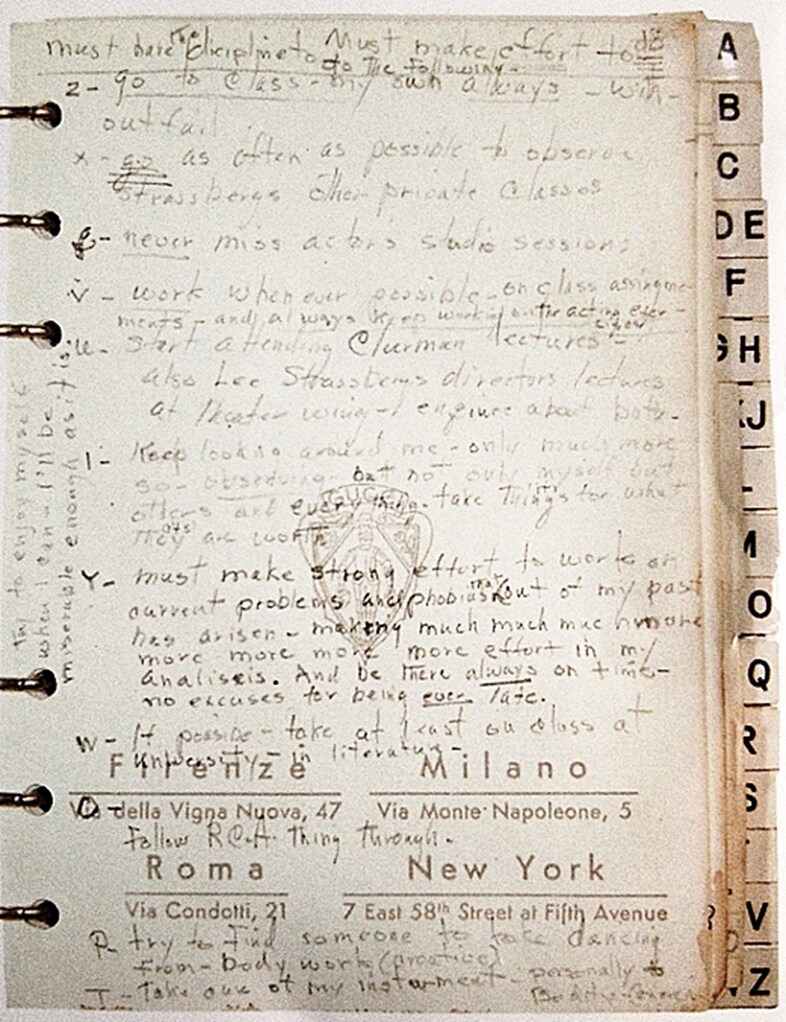 must have the dicipline to Must make effort to do
to do The following -
z - go to class - my own always - with-
out fail
x - go as often as possible to observe
Strassbergs other private classes
g - never miss actor's studio sessions
v - work when ever possible - on class assingme-
ments - and always keep working on the acting exer-
cises
u - Start attending Clurman lectures -
also Lee Strassbergs directors lectures
at theater wing - enquire about both -
l - Keep looking around me - only much more
so - observing - but not only myself but
others and everything - take things for what
they are worth
Y - must make strong effort to work on
current problems and phobias that out of my past
has arisen - making much much much more
more more more more effort in my
analisis. And be there always on time -
no excuses for being ever late.
w - If possible - take at least one class at
university - in literature -
o -
Follow R.C.A thing through.
P - try to find someone to take dancing
from - body work (creative)
T - Take care of my instrument - personally &
try to enjoy myself
when I can - I'll be
miserable enough as it is
GUCCI
Firenze Milano
Via della Vigna Nuova, 47 Via Monte Napoleone, 5
Roma New York
Via Condotti, 21 7 East 58th Street at Fifth Avenue
A
B
C
DE
F
GH
IJ
M
O
Q
R
S
V
Z